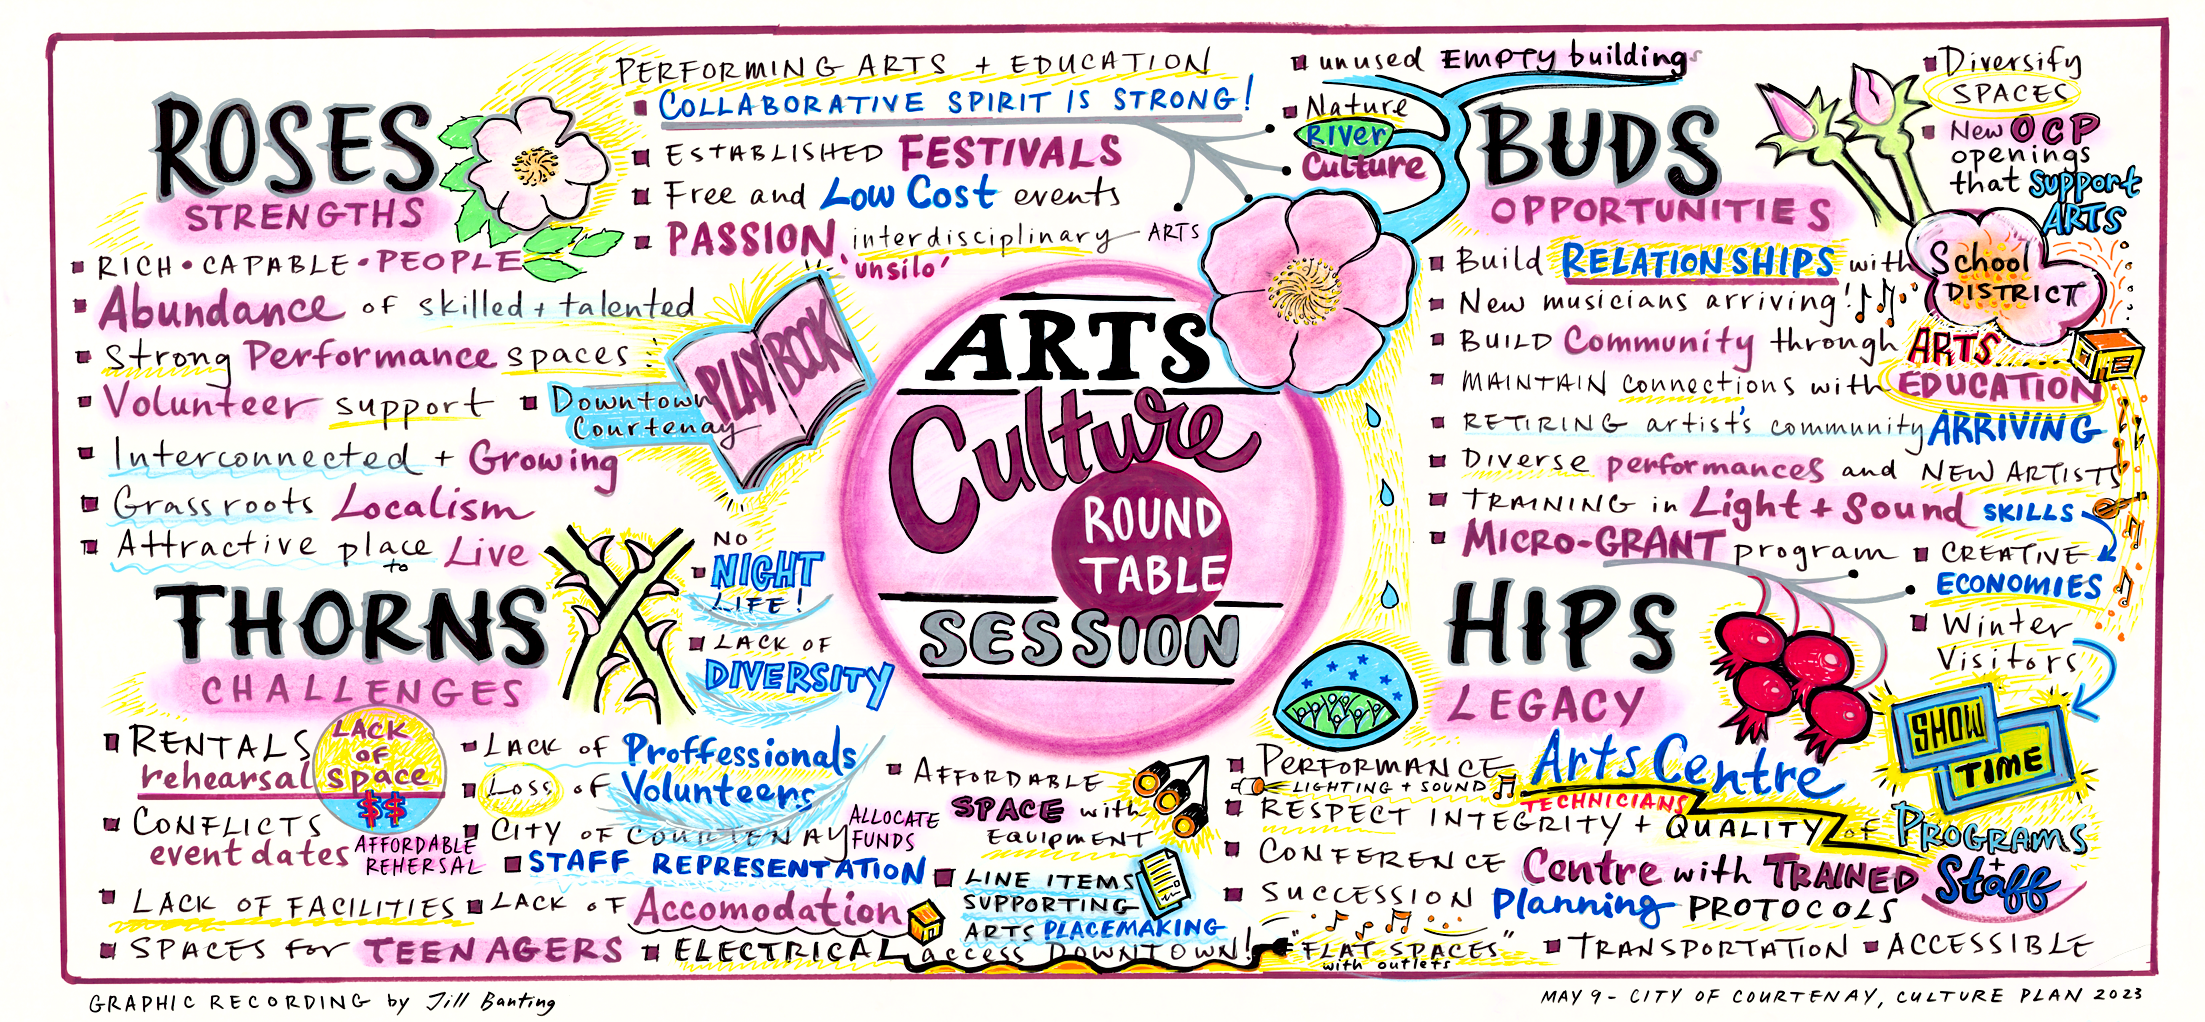 ROSES
STRENGTHS
PERFORMING ARTS + EDUCATION
COLLABORATIVE SPIRIT IS STRONG!
ESTABLISHED FESTIVALS
Free and Low Cost events
PASSION interdisciplinary ARTS
'unsilo'
RICH • CAPABLE • PEOPLE
Abundance of skilled + talented
Strong Performance spaces
Volunteer support
Downtown
Courtenay
PLAY BOOK
Interconnected + Growing
Grassroots Localism
Attractive place to Live
ARTS
Culture
ROUND
TABLE
SESSION
unused EMPTY buildings
Nature
River
Culture
BUDS
OPPORTUNITIES
Diversify
SPACES
New OCP
openings
that support
ARTS
Build RELATIONSHIPS with School
DISTRICT
New musicians arriving!
BUILD Community through ARTS
MAINTAIN connections with EDUCATION
RETIRING artist's community ARRIVING
Diverse performances and NEW ARTISTS
TRAINING in Light + Sound SKILLS
MICRO-GRANT program
CREATIVE
ECONOMIES
Winter
Visitors
THORNS
CHALLENGES
NO
NIGHT
LIFE!
LACK OF
DIVERSITY
RENTALS
rehearsal
LACK
OF
Space
$$
AFFORDABLE
REHERSAL
CONFLICTS
event dates
LACK of Proffessionals
Loss of Volunteers
CITY OF COURTENAY
ALLOCATE
FUNDS
STAFF REPRESENTATION
LACK OF FACILITIES
LACK OF Accomodation
SPACES for TEENAGERS
ELECTRICAL access DOWNTOWN!
AFFORDABLE
SPACE with
EQUIPMENT
LINE ITEMS
SUPPORTING
ARTS PLACEMAKING
HIPS
LEGACY
SHOW
TIME
PERFORMANCE Arts Centre
LIGHTING + SOUND TECHNICIANS
RESPECT INTEGRITY + QUALITY of PROGRAMS
+
Staff
CONFERENCE Centre with TRAINED
SUCCESSION Planning PROTOCOLS
"FLAT SPACES"
with outlets
TRANSPORTATION
ACCESSIBLE
GRAPHIC RECORDING by Jill Banting
MAY 9 - CITY OF COURTENAY, CULTURE PLAN 2023